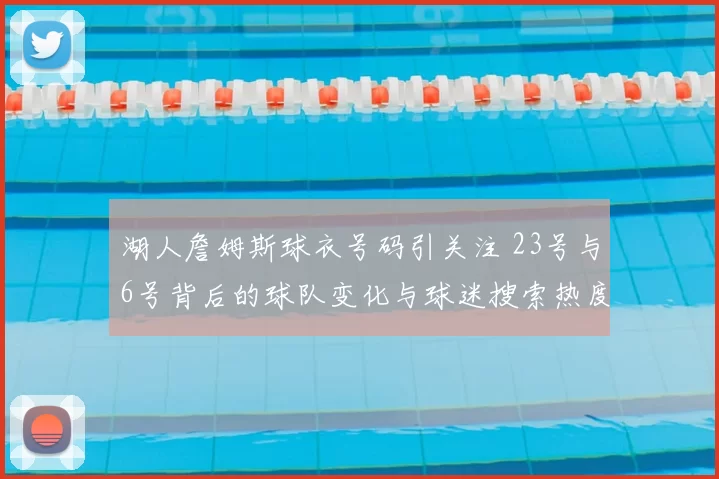 湖人詹姆斯球衣号码引关注 23号与
6号背后的球队变化与球迷搜索热度